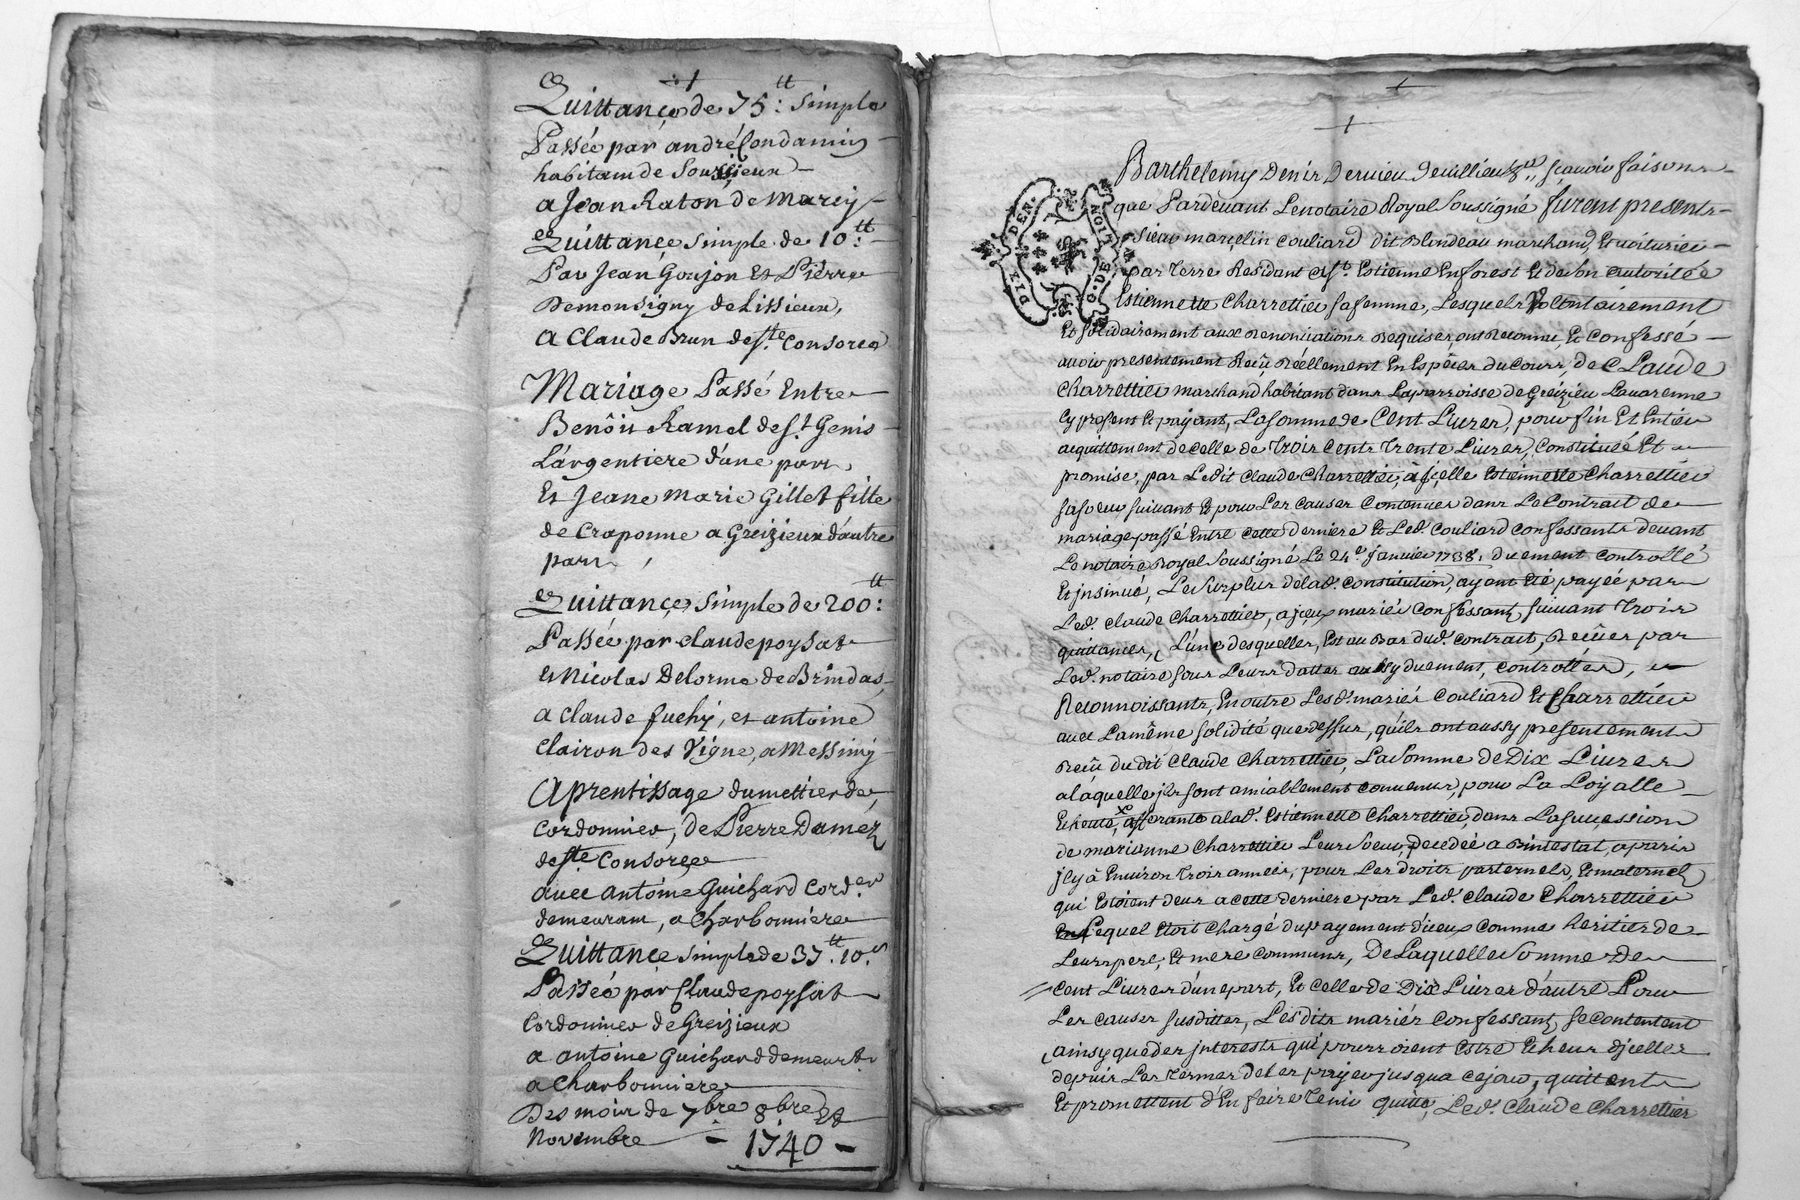 Quittance de 75:tt simple
Passée par andré Condamin
habitam de Soursieux
a Jean Raton de Marcy
Quittance simple de 10:tt
Par Jean Goujon Et Pierre
Demonsigny de Lissieux,
A Claude Brun de Ste Consorce
Mariage Passé Entre
Benôit Ramel de St Genis
L'argentiere d'une part
Et Jeane Marie Gillet fille
de Craponne a Greizieux d'autre
part
Quittance simple de 200:tt
Passée par claude poysat
et Nicolas Delorme de Brindas,
a claude fuchy, et antoine
Clairon des Vigne, a Messimy
Aprentissage du mettier de
Cordonnier, de Pierre Damez
de Ste Consorce
avec antoine Guichard Cord.er
demeurant, a Charbonniere
Quittance simple de 37.tt 10.s
Passée par Claude poysat
Cordonnier de Greizieux
a antoine Guichard demeur.t
a Charbonniere
Des mois de 7bre 8bre Et
Novembre - 1740 -
Barthelemy Denis Dervieu De villieu scavoir faisons
que Pardevant Le notaire Royal Soussigné fûrent presents
Sieur marcelin couliard dit Blondeau marchand, Et voiturier
par Terre Residant a St. Estienne En forest Et de Son autoritée
Estiennette Charrettier sa femme, Lesquels Volontairement
Et solidairement aux renonciations Requises ont Reconnu, Et confessé
avoir presentement Reçû Réellement En Espèces du Cours, de Claude
Charrettier marchand habitant dans La parroisse de Greizieu Lavarenne
Cy present Et payant, La Somme de Cent Livres, pour fin Et Entier
acquittement de celle de Trois Cents Trente Livres, Constituée Et
promise, par Ledit Claude Charrettier, à Jcelle Estiennette Charrettier
sa soeur suivant Et pour Les causes Contenues dans Le Contrait de
mariage passé Entre cette derniere Et Led. Couliard confessants devant
Le notaire Royal Soussigné Le 24e Janvier 1738, duement controllé
Et jnsinué, Le Surplus de lad. constitution, ayant Eté payée par
Led. claude Charrettier, a jceux mariés Confessants, suivant Trois
quittances, L'une desquelles, Est au Bas dud. contrait, Reçûes par
Led. notaire sous Leurs dattes duement controllées,
Reconnoissants, En outre Lesd. mariés Couliard Et Charrettier
avec La même solidité que dessus, qu'ils ont aussy presentement
Reçu du dit Claude Charrettier, La Somme de Dix Livres
a laquelle jls sont amiablement convenus, pour La Loyalle
Echeute, afferante a lad. Estiennette Charrettier, dans La Succession
de marianne Charrettier Leur Soeur, decedée a Bintestat, a paris
jl y à Environ Trois années, pour Les droits paternels, Et maternels
qui Estoient deus a cette derniere par Led. Claude Charrettier
Lequel Etoit Chargé du payement d'iceux comme heritier de
Leurs pere, Et mere communs, De Laquelle Somme de
Cent Livres d'une part, Et celle de Dix Livres d'autre Pour
Les causes susdittes, Lesdits mariés Confessants, se contentent
ainsy que des jnterests qui pourroient Estre Echeus d'jcelles
depuis Les Termes de les payer jusqua ce jour, quittent
Et promettent d'En faire Tenir quitte, Led. Claude Charrettier